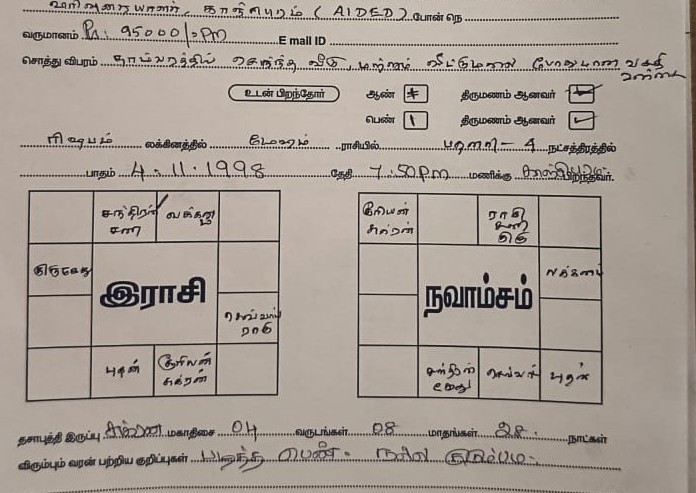 காஞ்சிபுரம் (AIDED) போன் நெ
வருமானம் Rs: 95000/-pm E mail ID
சொத்து விபரம் தாம்பரத்தில் சொந்த வீடு, மற்றும் வீட்டுமனை போதுமான வசதி உள்ளது
உடன் பிறந்தோர் ஆண் திருமணம் ஆனவர்
பெண் 1 திருமணம் ஆனவர் ✓
ரிஷபம் லக்கினத்தில் மேஷம் ராசியில் பரணி - 4 நட்சத்திரத்தில்
பாதம் 4.11.1998 தேதி 7.50pm மணிக்கு பிறந்தவர்.
சந்திரன் சனி லக்னம்
குரு கேது
இராசி
செவ்வாய் ராகு
புதன் சூரியன் சுக்ரன்
சூரியன் சுக்ரன் ராகு சனி குரு
லக்னம்
நவாம்சம்
சந்திரன் கேது செவ்வாய் புதன்
தசாபுத்தி இருப்பு சுக்ரன் மகாதிசை 04 வருடங்கள் 08 மாதங்கள் 28 நாட்கள்
விரும்பும் வரன் பற்றிய குறிப்புகள் படித்த பெண். நல்ல குடும்பம்.